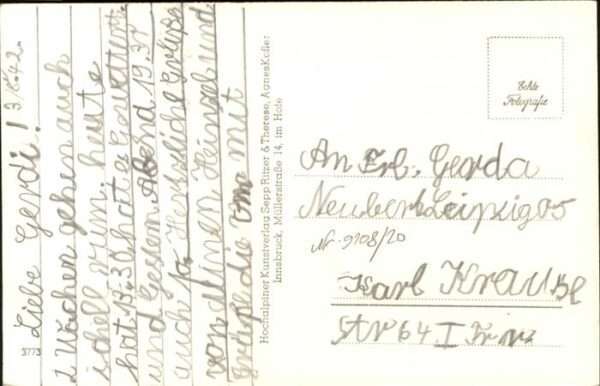 3.8.42.
Liebe Gerdi!
2 Wochen gehen auch
schell rum. heute
hat 13-30, hat es Gewittert.
und Gestern Abend 19.37
auch so Herzliche Grüße
von deinen Hänsel und
die Oma mit
3773
Hochalpiner Kunstverlag Sepp Ritzer & Therese, Agnes Koller
Innsbruck, Müllerstraße 14, im Hofe
Echte
Fotografie
An Frl. Gerda
Neubert Leipzig 05
Nr. 9108/20
Karl Krause
Str 64 I